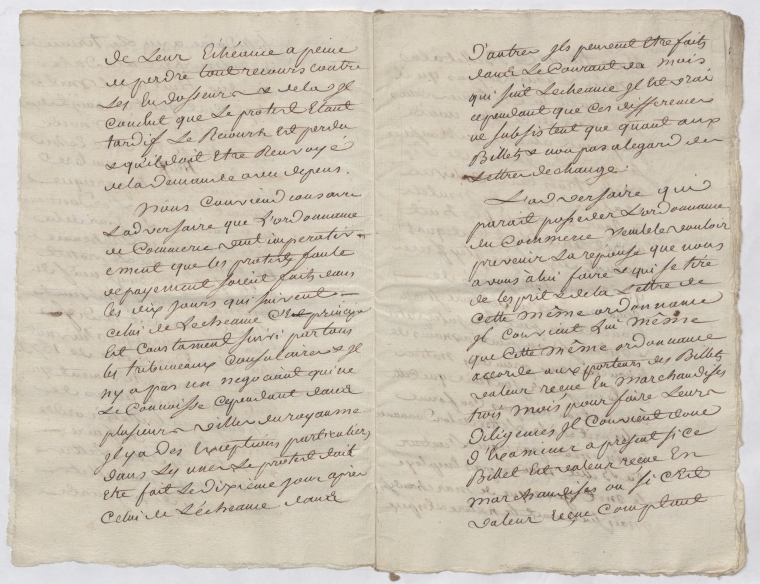 de Leur Echéance a peine
de perdre tout recours contre
Les Endosseurs & de la jl
conclut que Le protest Etant
tardif Le Recours Est perdu
& quil doit Etre Renvoyé
de la demande avec depens.
Nous Convien dronsavec
L'adversaire que L'ordonnance
de Commerce veut imperativ-
ement que les protests faute
de payement soient faits dans
les dix jours qui suivent
celui de Lecheance Ce principe
Est Constament suivi par tous
les tribuneaux Consulaires & jl
ny a pas un negociant qui ne
Le Connoisse Cependant dans
plusieurs villes du royaume
jl y a des Exceptions particulieres
dans Les unes Le protest doit
Etre fait Le dixieme jour apres
Celui de L'écheance dans
D'autres jls peuvent Etre faits
dans Le Courant du mois
qui suit Lecheance jl Est vrai
cependant que Ces differences
ne subsistent que quant aux
Billets & non pas a legard des
Lettres de change.
L'adversaire qui
parait posseder L'ordonnance
du Commerce semble vouloir
prevenir La reponse que nous
avons à lui faire & qui se tire
de lesprit & de la Lettre de
Cette même ordonnance
jl Convient Lui même
que Cette même ordonnance
accorde aux porteurs des Billets
valeur reçue En marchandises
trois mois pour faire Leurs
Diligences jl Convient donc
D'Examiner a présent si ce
Billet Est valeur reçue En
marchandises ou si c'Est
valeur reçue Comptant